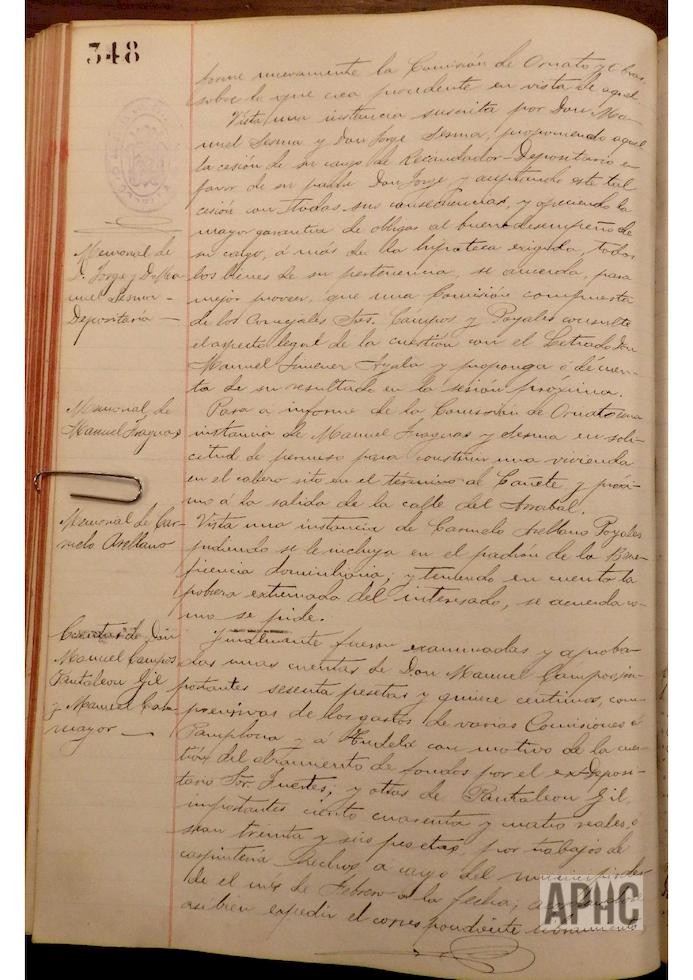 348
forme nuevamente la Comisión de Ornato y Obras
sobre lo que crea procedente en vista de aquel.
Vista una instancia suscrita por Don Ma-
nuel Sesma y Don Jorge Sesma, proponiendo aquel
la cesión de su cargo de Recaudador-Depositario en
favor de su padre Don Jorge y aceptando este tal
cesión con todas sus consecuencias, y ofreciendo la
mayor garantia de obligar al buen desempeño de
su cargo, á más de la hipoteca exigida, todos
los bienes de su pertenencia, se acuerda, para
mejor proveer, que una Comisión compuesta
de los Concejales Sres. Campos y Poyales consulte
el aspecto legal de la cuestión con el Letrado Don
Manuel Jimenez Ayala y proponga ó dé cuen-
ta de su resultado en la sesión próxima.
Memorial de
D. Jorge y D. Ma-
nuel Sesma -
Depositaria -
Pasa a informe de la Comisión de Ornato una
instancia de Manuel Fraguas y Sesma en soli-
citud de permiso para construir una vivienda
en el cabezo sito en el término de Cañete y próxi-
mo á la salida de la calle del Arrabal.
Memorial de
Manuel Fraguas
Vista una instancia de Carmelo Arellano Poyales
pidiendo se le incluya en el padrón de la Bene-
ficencia domiciliaria; y teniendo en cuenta la
pobreza extremada del interesado, se acuerda co-
mo se pide.
Memorial de Car-
melo Arellano
Finalmente fueron examinadas y aproba-
das unas cuentas de Don Manuel Campos, im-
portantes sesenta pesetas y quince centimos, com-
prensivas de los gastos de varias Comisiones á
Pamplona y á Tudela con motivo de la cues-
tión del alzamiento de fondos por el ex-Deposi-
tario Sor. Fuertes; y otras de Pantaleon Gil,
importantes ciento cuarenta y cuatro reales, ó
sean treinta y seis pesetas, por trabajos de
carpintería hechos a cargo del municipio des-
de el mes de Febrero a la fecha;
asi bien expedir el correspondiente libramiento
Cuentas de Don
Manuel Campos
Pantaleon Gil
y Manuel Cala-
mayor -
APHC